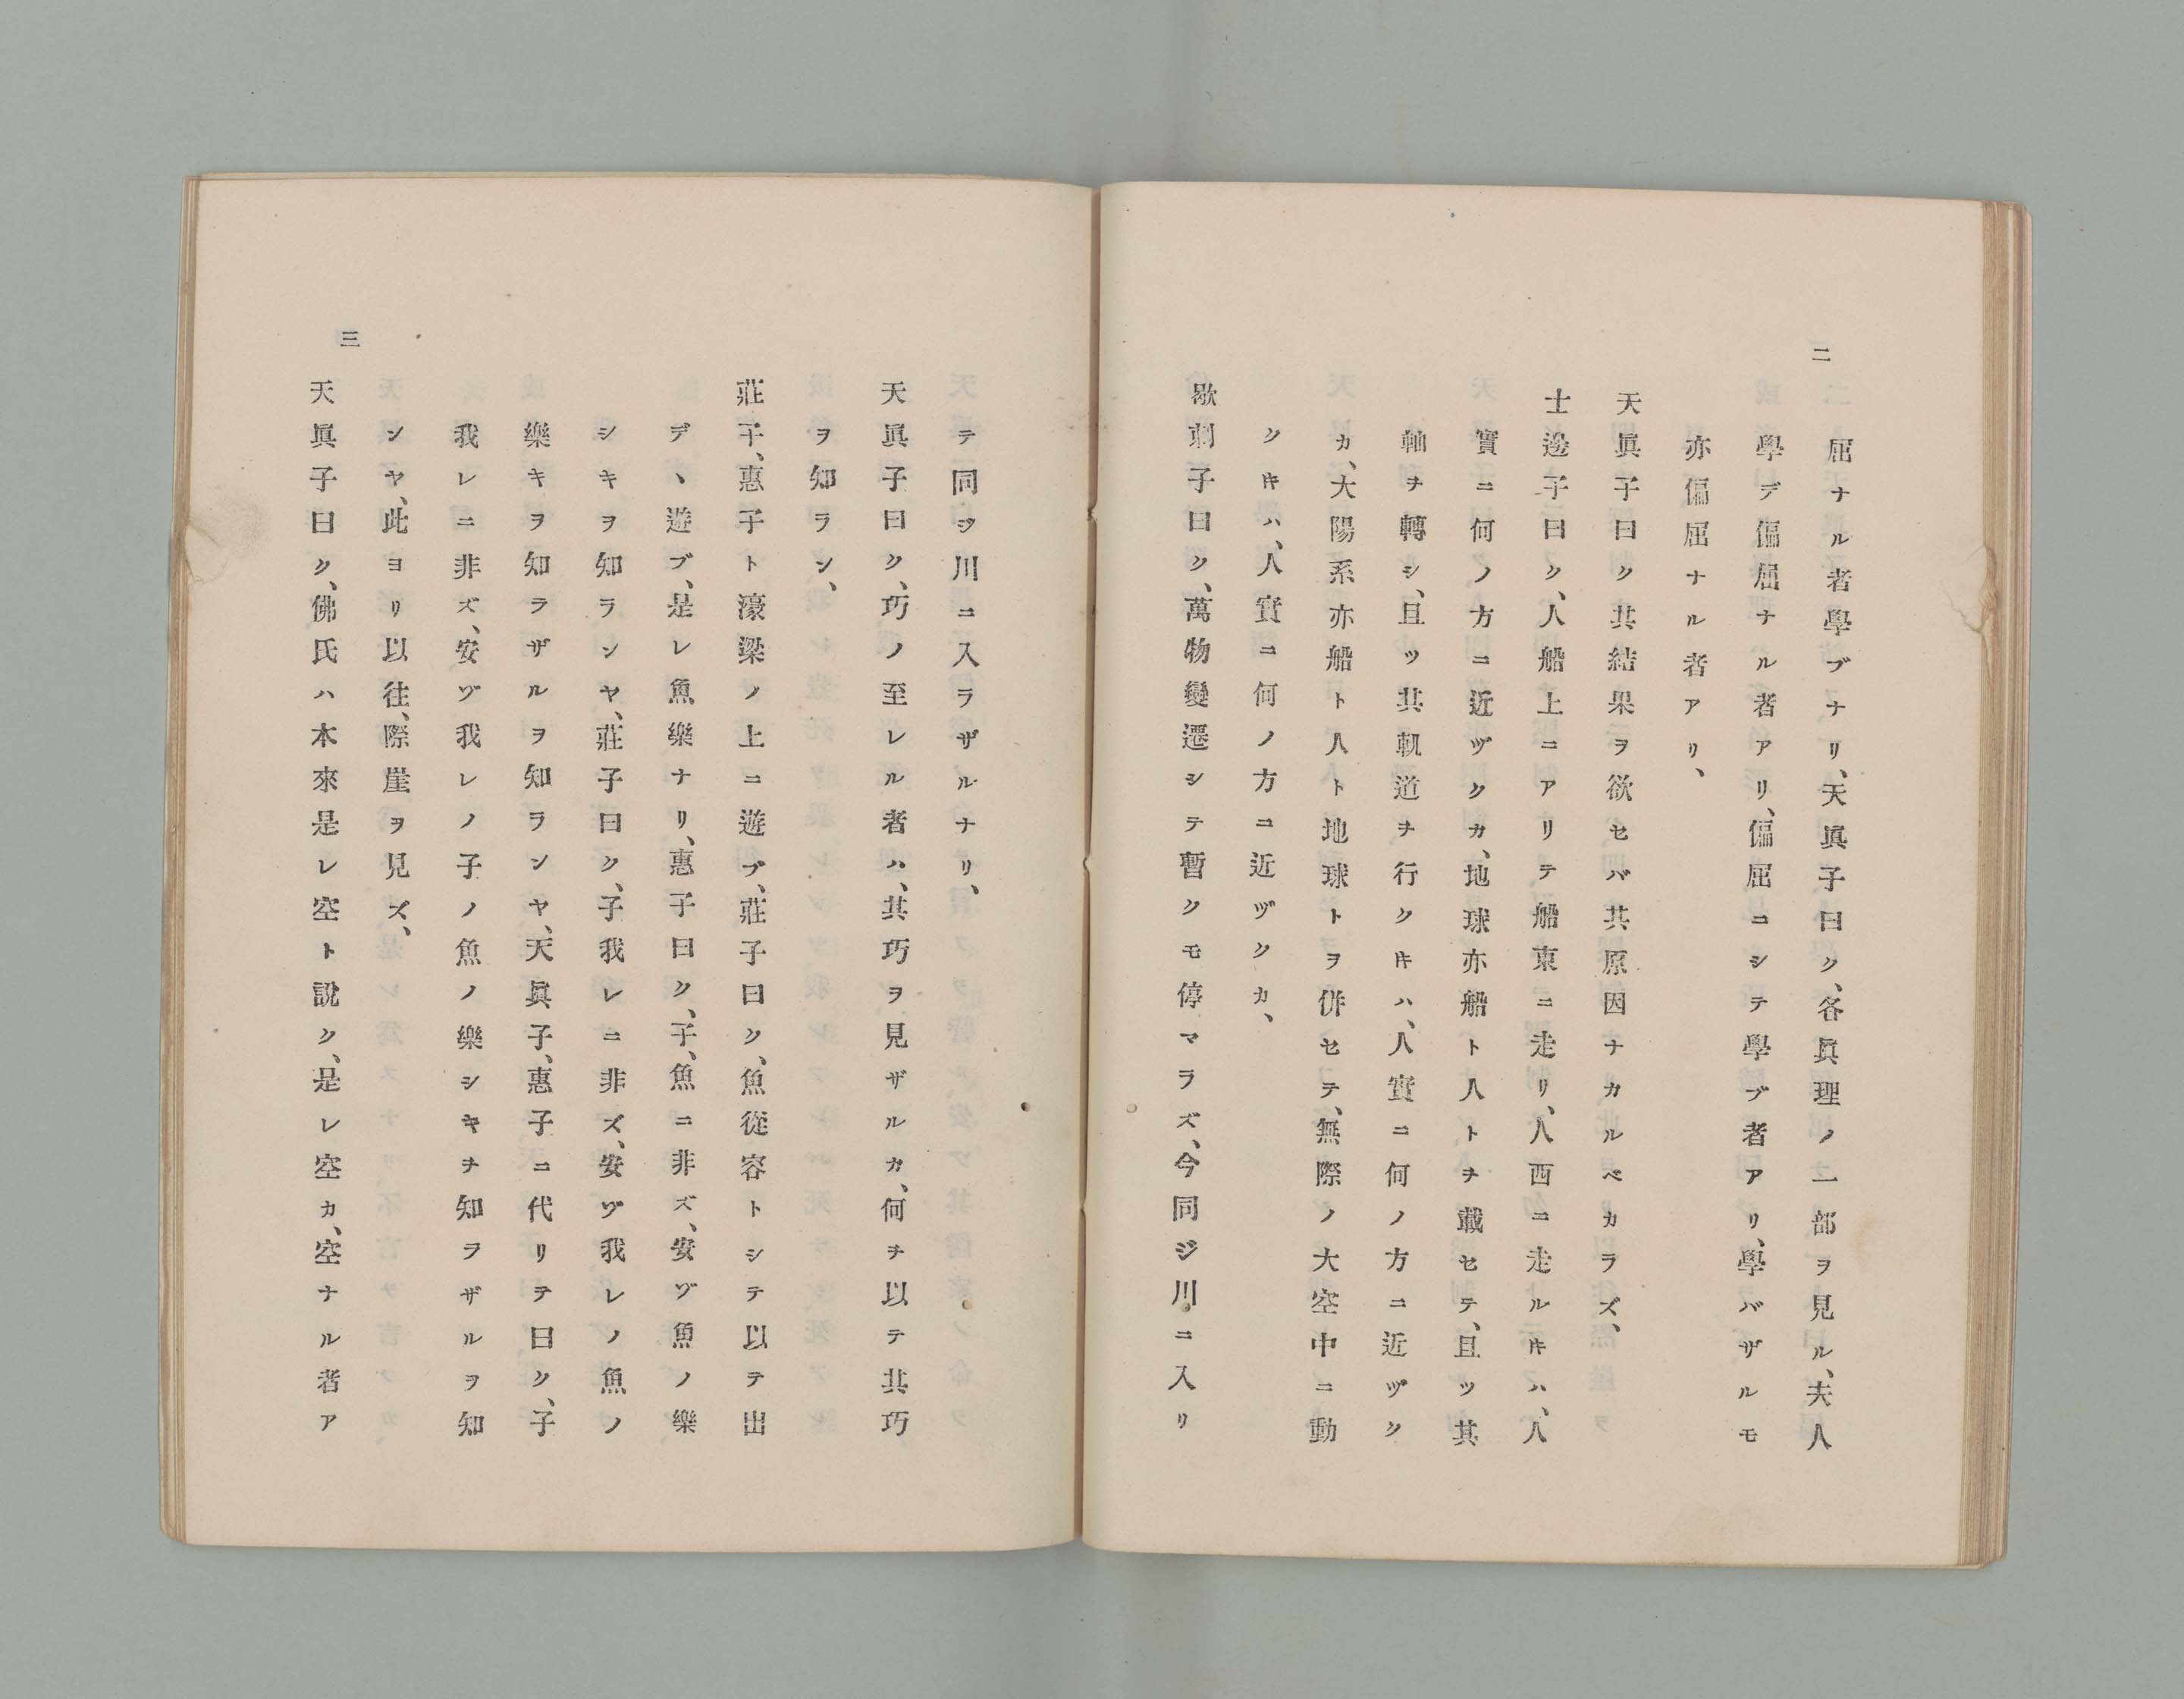 二
屈ナル者學ブナリ、天眞子曰ク、各眞理ノ一部ヲ見ル、夫人
學デ偏屈ナル者アリ、偏屈ニシテ學ブ者アリ、學バザルモ
亦偏屈ナル者アリ、
天眞子曰ク其結果ヲ欲セバ其原因ナカルベカラズ、
士邊子曰ク、人船上ニアリテ船東ニ走リ、人西ニ走ルキハ、人
實ニ何ノ方ニ近ヅクカ、地球亦船ト人トヲ載セテ、且ツ其
軸ヲ轉シ、且ツ其軌道ヲ行クキハ、人實ニ何ノ方ニ近ヅク
カ、大陽系亦船ト人ト地球トヲ併セテ、無際ノ大空中ニ動
クキハ、人實ニ何ノ方ニ近ヅクカ、
歇剌子曰ク、萬物變遷シテ暫クモ停マラズ、今同ジ川ニ入リ
テ同ジ川ニ入ラザルナリ、
天眞子曰ク、巧ノ至レル者ハ、其巧ヲ見ザルカ、何ヲ以テ其巧
ヲ知ラン、
莊子、惠子ト濠梁ノ上ニ遊ブ、莊子曰ク、魚從容トシテ以テ出
デヽ遊ブ、是レ魚樂ナリ、惠子曰ク、子、魚ニ非ズ、安ヅ魚ノ樂
シキヲ知ランヤ、莊子曰ク、子我レニ非ズ、安ヅ我レノ魚ノ
樂キヲ知ラザルヲ知ランヤ、天眞子、惠子ニ代リテ曰ク、子
我レニ非ズ、安ヅ我レノ子ノ魚ノ樂シキヲ知ラザルヲ知
ンヤ、此ヨリ以往、際崖ヲ見ズ、
天眞子曰ク、佛氏ハ本來是レ空ト說ク、是レ空カ、空ナル者ア
三